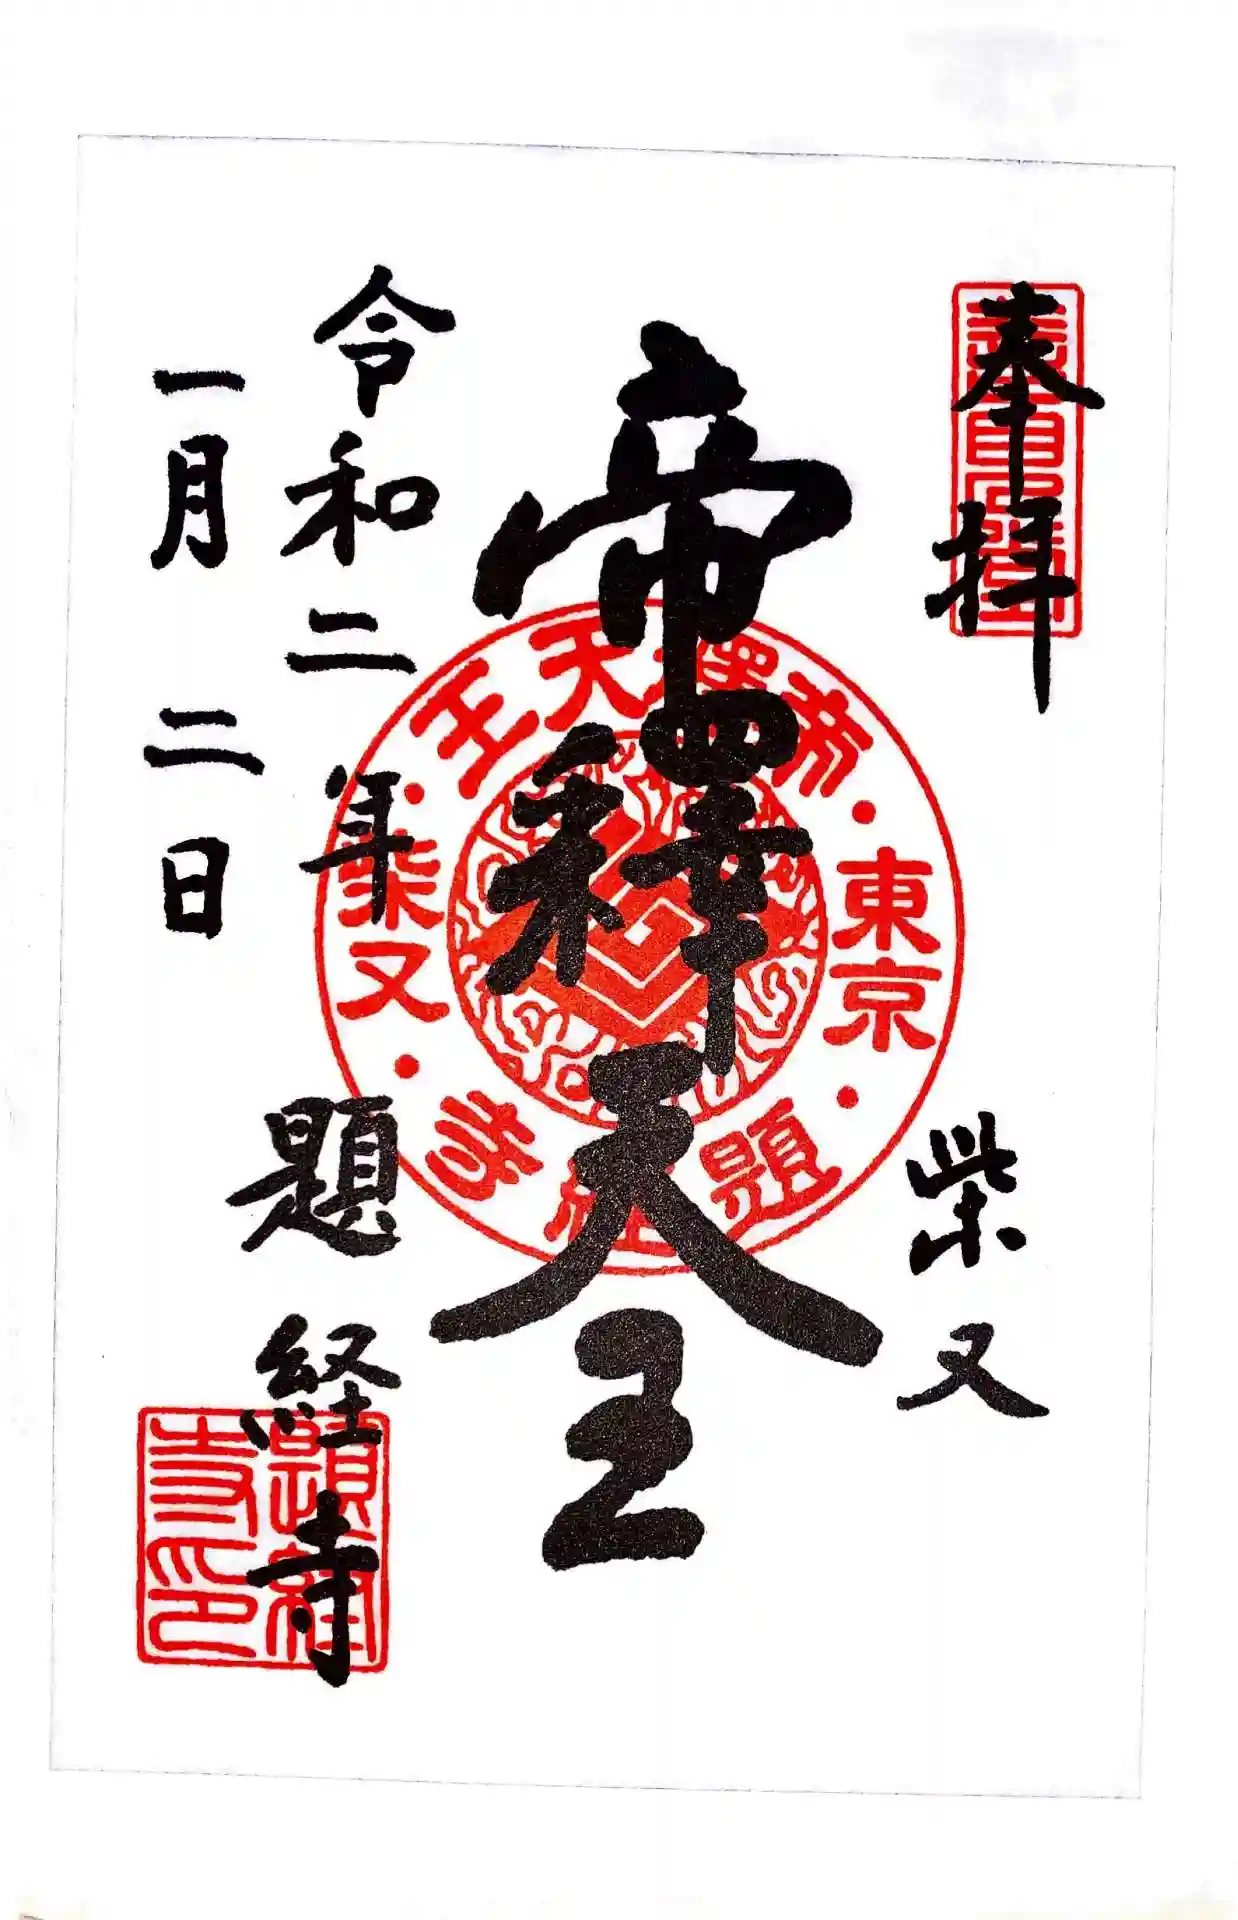 奉拝
柴又
帝釋天王
令和二年
一月二日
題経寺
東京・帝釋天王・柴又・題経寺
題経寺印